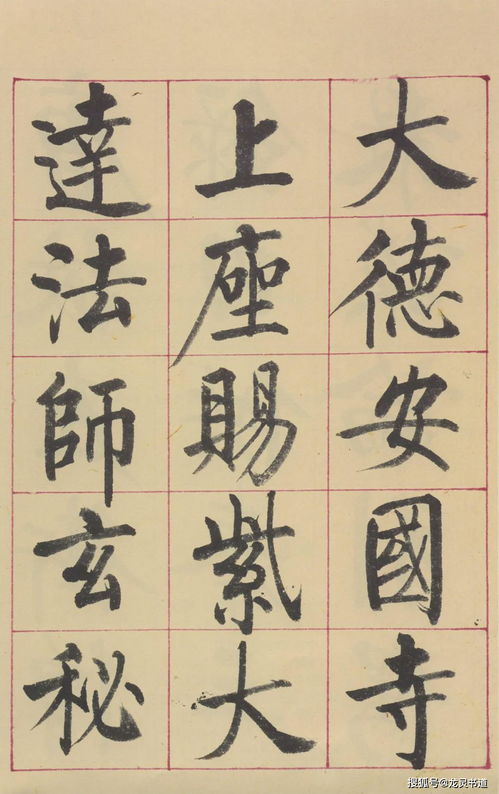 大德安國寺
上座賜紫大
達法師玄秘
搜狐号@龙灵书道